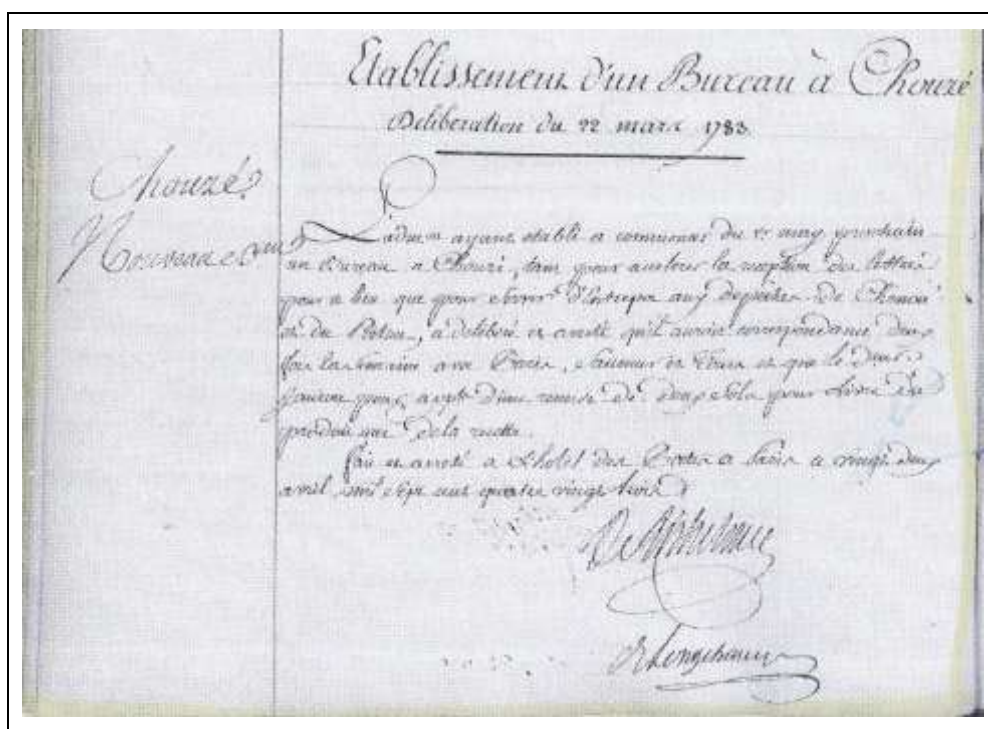 Etablissement d'un Bureau à Chouzé
Deliberation du 22 mars 1783
Chouzé
Nouveau
L'adm.on ayant etabli a commencer du 1er may prochain
un Bureau a Chouzé, tant pour la reception des lettres
pour ce lieu que pour d'Entrepos aux depeches de Chinon
et du Poitou, a deliberé et areté qu'il auroit correspondance deux
fois la semaine avec Paris, Saumur et Tours et que le
jouiroit pour d'une remise de deux sols pour livre du
produit de la recette.
fait et areté a l'hotel des Postes a Paris ce vingt deux
avril mil sept cent quatre vingt trois
De Longchamp